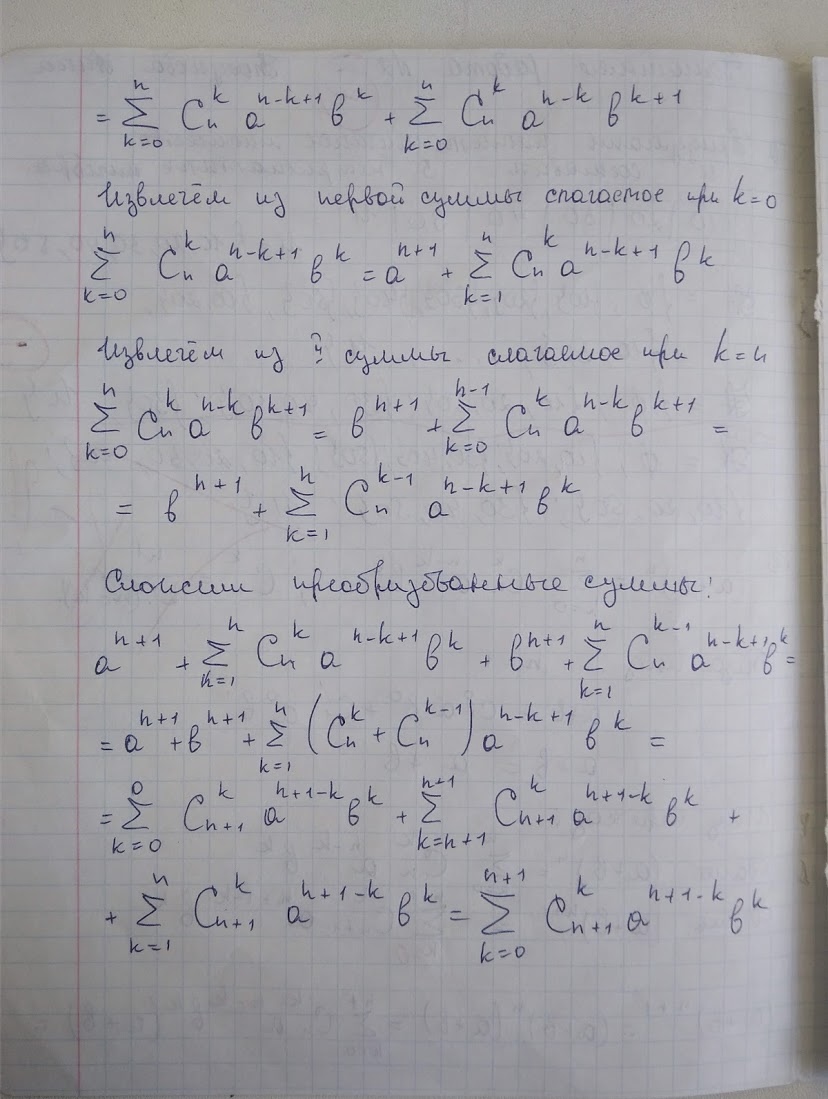 = ∑_{k=0}^{n} C_n^k a^{n-k+1} b^k + ∑_{k=0}^{n} C_n^k a^{n-k} b^{k+1}
Извлечём из первой суммы слагаемое при k=0
∑_{k=0}^{n} C_n^k a^{n-k+1} b^k = a^{n+1} + ∑_{k=1}^{n} C_n^k a^{n-k+1} b^k
Извлечём из суммы слагаемое при k=n
∑_{k=0}^{n} C_n^k a^{n-k} b^{k+1} = b^{n+1} + ∑_{k=0}^{n-1} C_n^k a^{n-k} b^{k+1} =
= b^{n+1} + ∑_{k=1}^{n} C_n^{k-1} a^{n-k+1} b^k
Сложим преобразованные суммы:
a^{n+1} + ∑_{k=1}^{n} C_n^k a^{n-k+1} b^k + b^{n+1} + ∑_{k=1}^{n} C_n^{k-1} a^{n-k+1} b^k =
= a^{n+1} + b^{n+1} + ∑_{k=1}^{n} (C_n^k + C_n^{k-1}) a^{n-k+1} b^k =
= ∑_{k=0}^{0} C_{n+1}^k a^{n+1-k} b^k + ∑_{k=n+1}^{n+1} C_{n+1}^k a^{n+1-k} b^k +
+ ∑_{k=1}^{n} C_{n+1}^k a^{n+1-k} b^k = ∑_{k=0}^{n+1} C_{n+1}^k a^{n+1-k} b^k